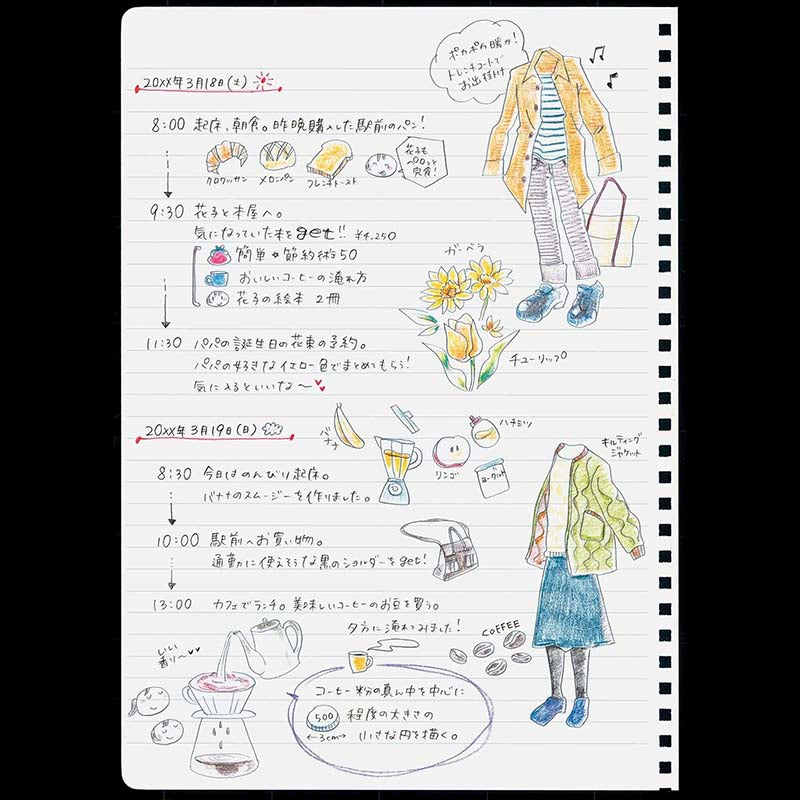 ポカポカ暖か!
トレンチコートで
お出掛け
20xx年3月18日(土)
8:00 起床、朝食。昨晩購入した駅前のパン!
クロワッサン
メロンパン
フレンチトースト
花子も
ペロっと
完食!
9:30 花子と本屋へ。
気になっていた本をget!! ¥4,250
簡単☆節約術50
おいしいコーヒーの淹れ方
花子の絵本 2冊
ガーベラ
チューリップ
11:30 パパの誕生日の花束の予約。
パパの好きなイエロー色でまとめてもらう!
気に入るといいな〜♥♥
20xx年3月19日(日)
バナナ
ハチミツ
リンゴ
ヨーグルト
キルティング
ジャケット
8:30 今日はのんびり起床。
バナナのスムージーを作りました。
10:00 駅前へお買い物。
通勤に使えそうな黒のショルダーをget!
13:00 カフェでランチ。美味しいコーヒーのお豆を買う。
夕方に淹れてみました!
COFFEE
いい
香り〜♥♥
コーヒー粉の真ん中を中心に
500 程度の大きさの
←3cm→ 小さな円を描く。